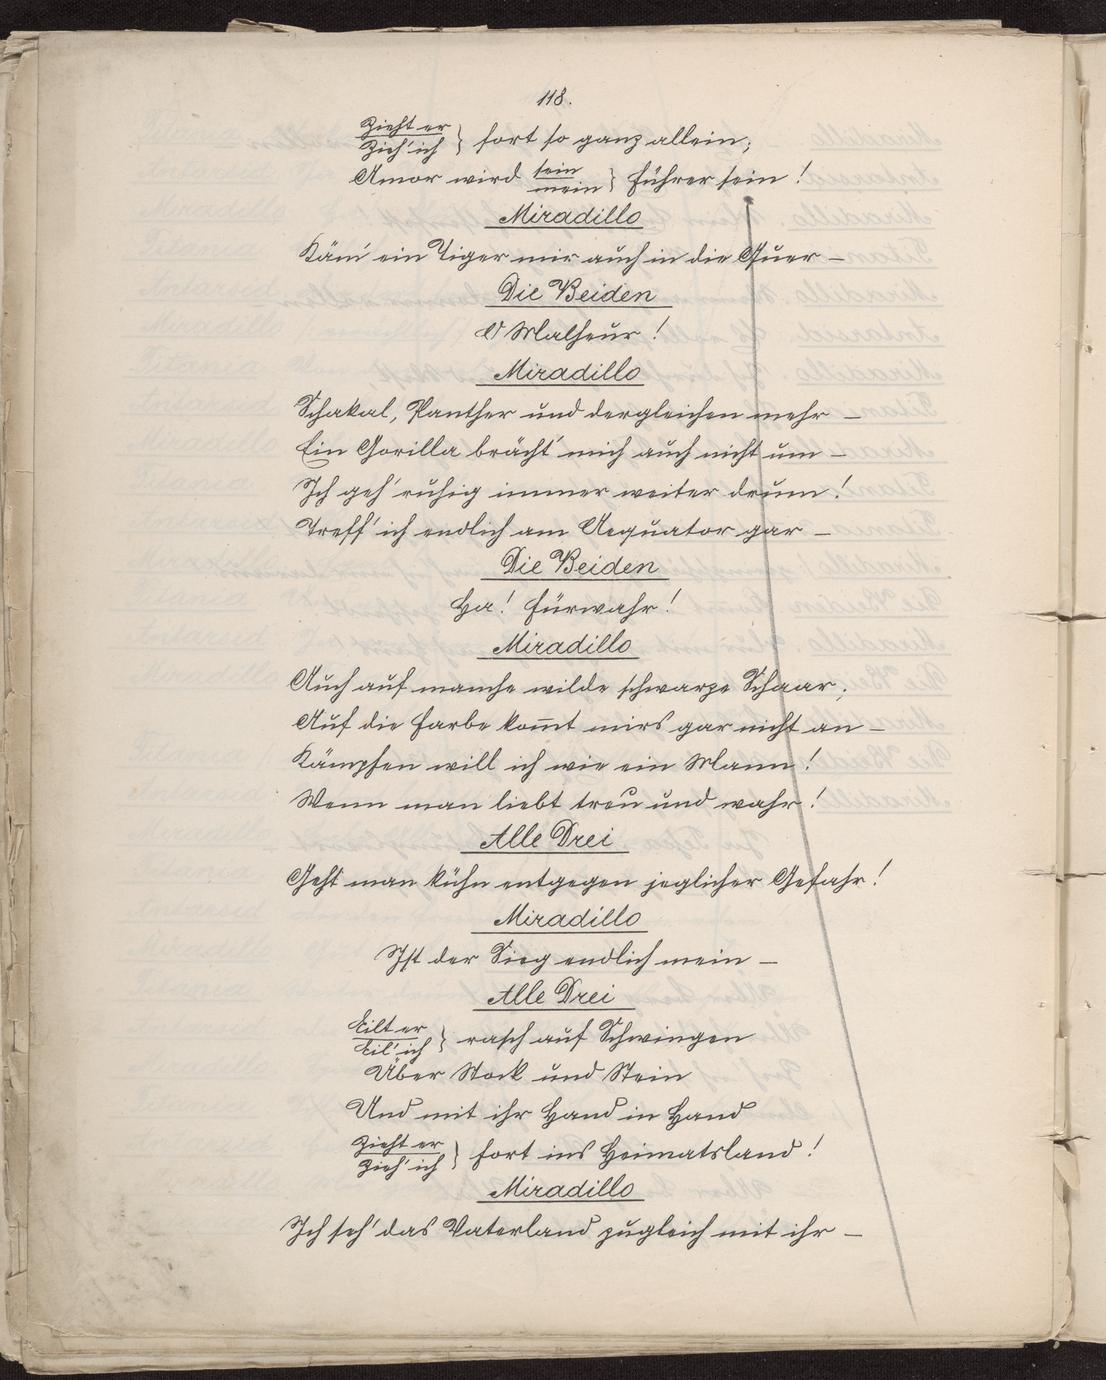 118.
Zieht er
Zieh' ich } fort so ganz allein;
Amor wird sein
mein } Führer sein!
Miradillo
Käm' ein Tiger mir auch in die Quer –
Die Beiden
O Malheur!
Miradillo
Schakal, Panther und dergleichen mehr –
Ein Gorilla brächt' mich auch nicht um –
Ich geh' ruhig immer weiter drum!
Treff' ich endlich am Aequator gar –
Die Beiden
Ha! Fürwahr!
Miradillo
Auch auf manche wilde schwarze Schaar;
Auf die Farbe kom̄t mirs gar nicht an –
Kämpfen will ich wie ein Mann!
Wenn man liebt treu und wahr!
Alle Drei
Geht man kühn entgegen jeglicher Gefahr!
Miradillo
Ist der Sieg endlich mein –
Alle Drei
Eilt er
Eil' ich } rasch auf Schwingen
Über Stock und Stein
Und mit ihr Hand in Hand
Zieht er
Zieh' ich } fort ins Heimatsland!
Miradillo
Ich seh' das Vaterland zugleich mit ihr –